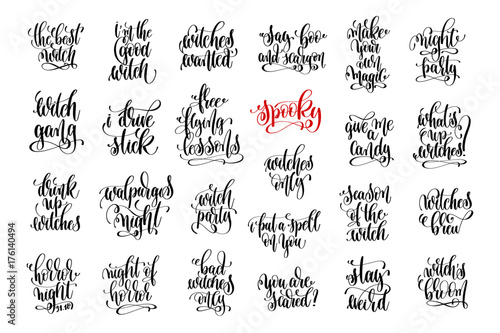 the best
witch
i'm the
good
witch
witches
wanted
say boo
and scary on
make
your
own
magic
night
party
witch
gang
i drive
stick
free
flying
lessons
spooky
give me
a
candy
what's
up
witches?
drink
up
witches
walpurges
night
witch
party
witches
only
i put a spell
on you
season
of the
witch
witches
brew
horror
night
31.10
night of
horror
bad
witches
only
you are
scared?
stay
weird
witch's
broom
176140494